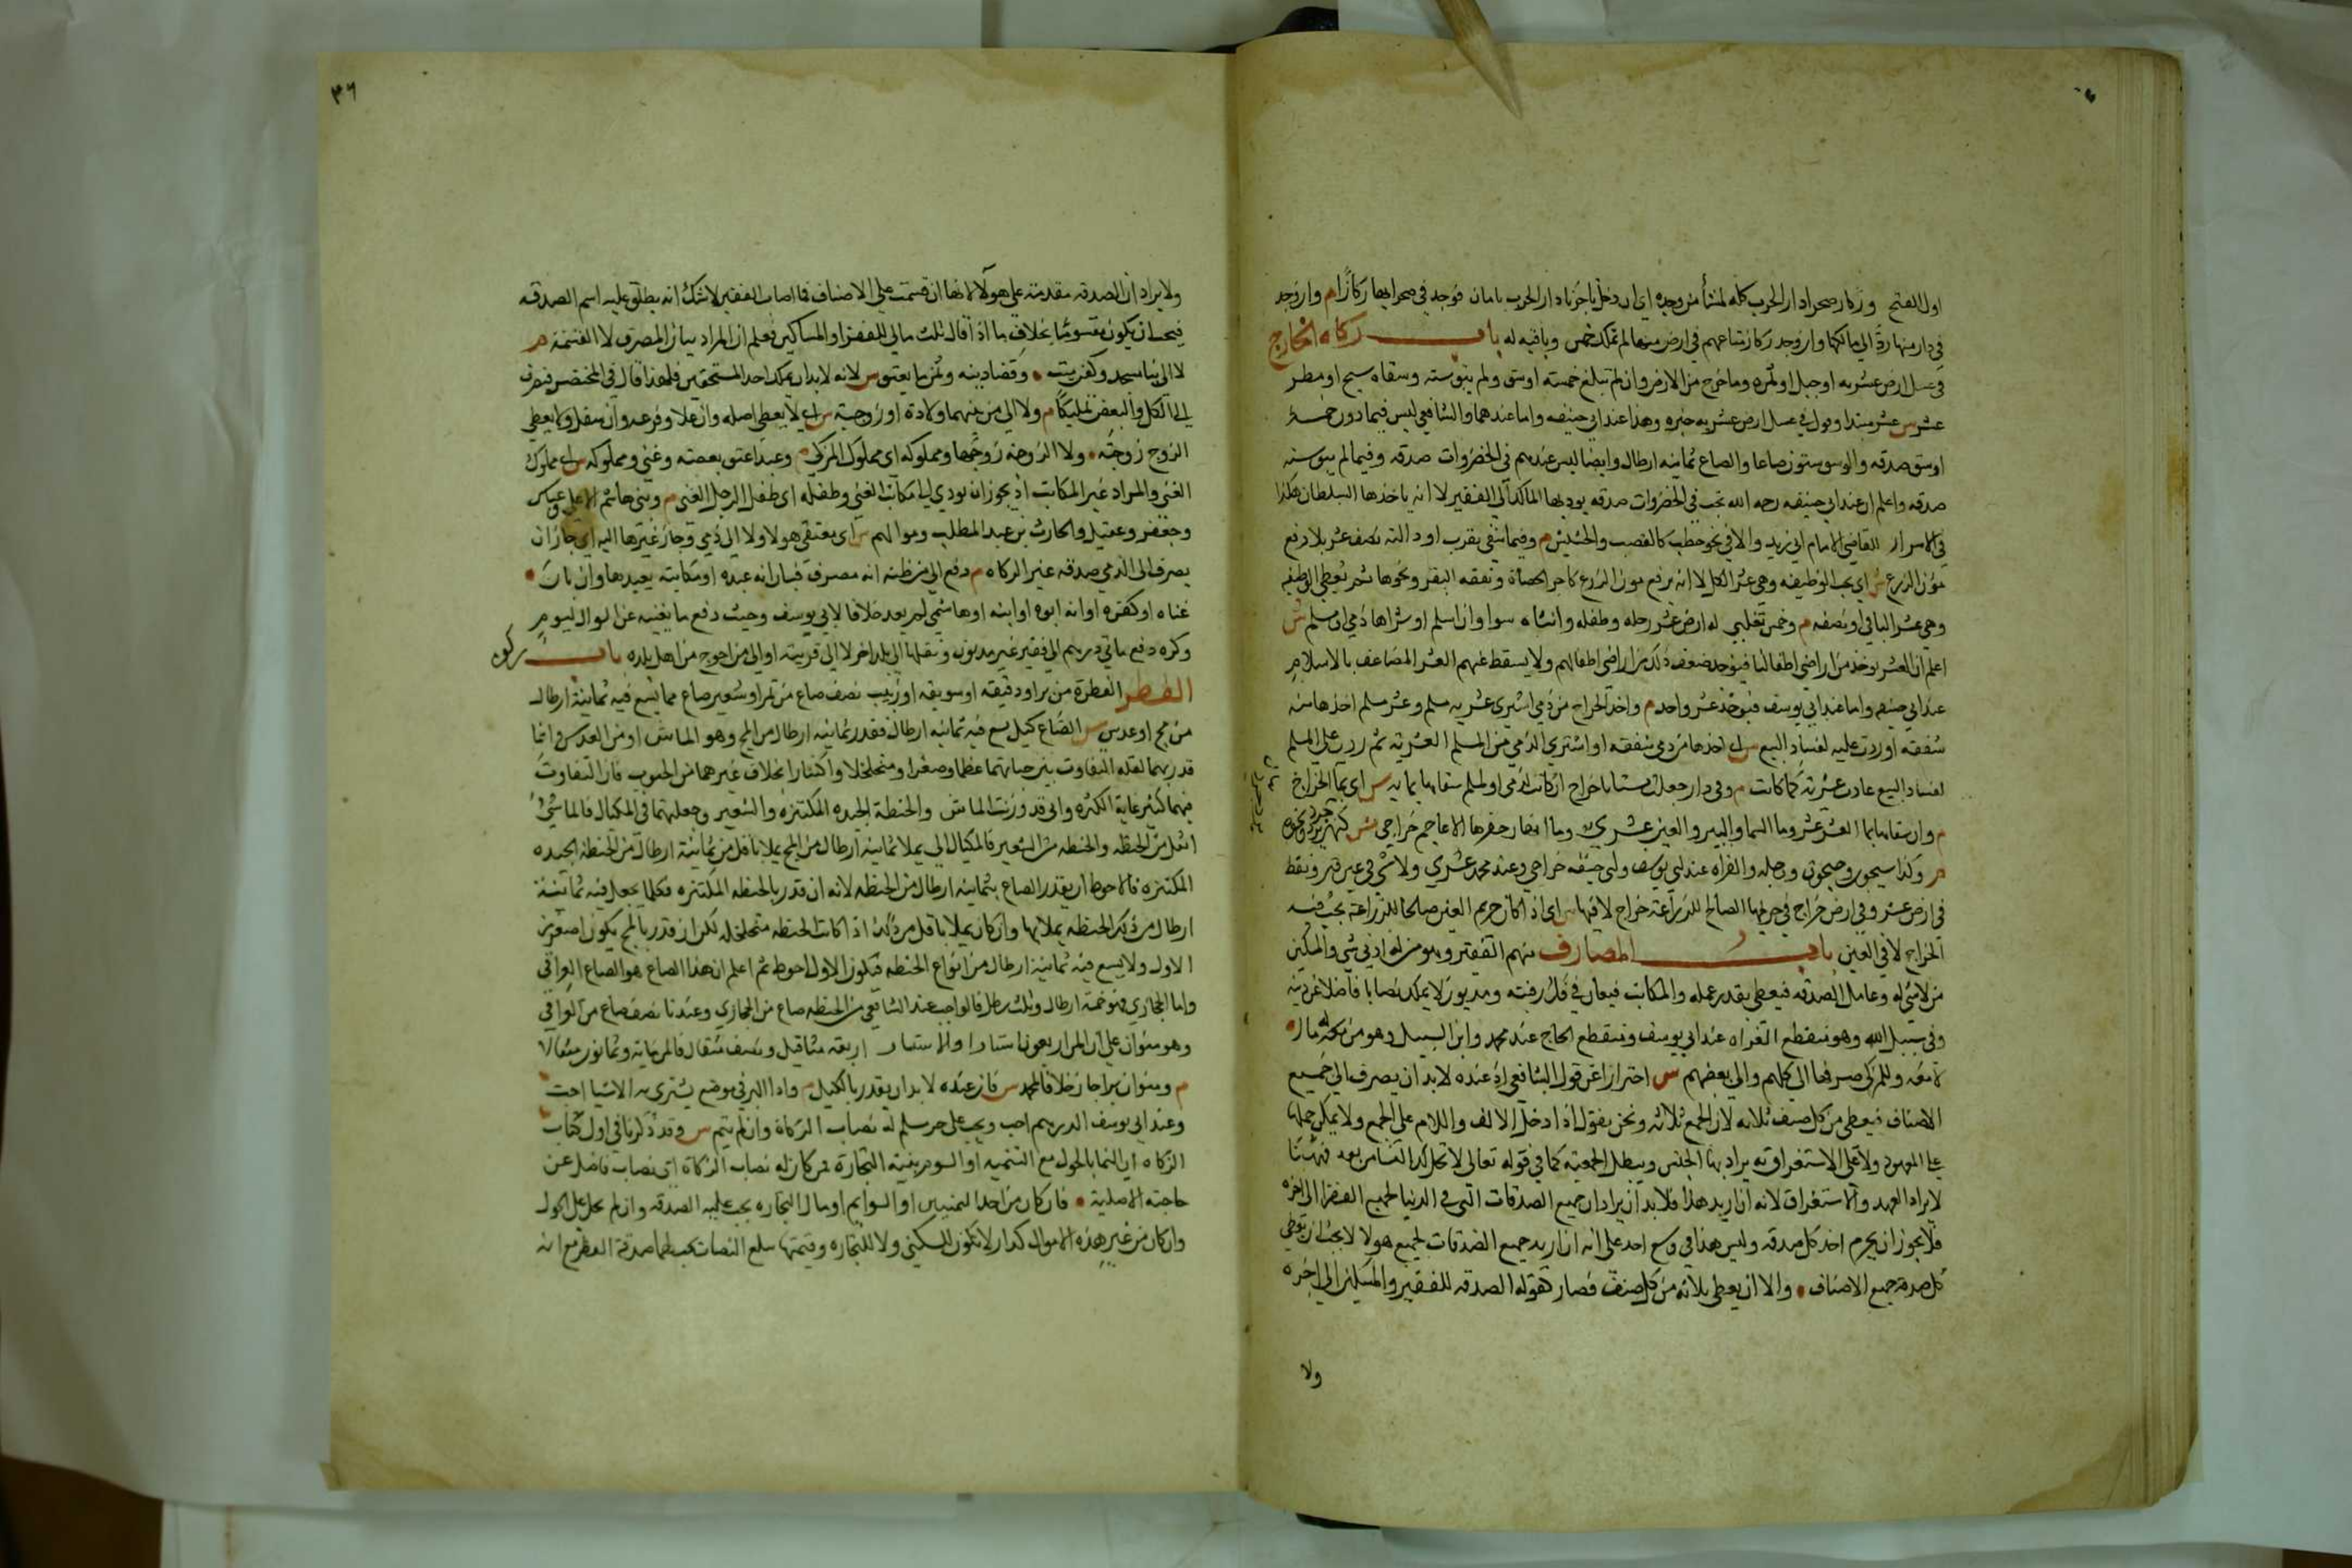 اول الفتح وركاز صحراء دار الحرب كله لمستأمن وجده اي ان دخل تاجرنا دار الحرب بامان فوجد في صحرائها ركازا م وان وجد
في دار منها رده الى مالكها وان وجد ركاز متاعهم في ارض منها لم تملك خمس وباقيه له باب زكاة الخارج
في عسل ارض عشرية او جبل او ثمره وما خرج من الارض وان لم تبلغ خمسة اوسق ولم يبق سنة وسقاه سيح او مطر
عشر س عشر مبتدا وقوله في عسل ارض عشرية خبره وهذا عند ابي حنيفه واما عندهما والشافعي ليس فيما دون خمسة
اوسق صدقه والوسق ستون صاعا والصاع ثمانيه ارطال وايضا ليس عندهم في الخضروات صدقه وفيما لم يبق سنه
صدقه واعلم ان عند ابي حنيفه رحمه الله تجب في الخضروات صدقه يوديها المالك الى الفقير لا انه ياخذها السلطان هكذا
في الاسرار للقاضي الامام ابي زيد والا في نحو حطب كالقصب والحشيش م وفيما سقي بغرب او دالية نصف عشر بلا رفع
مؤن الزرع ش اي يجب الوظيفه وهي عشر الكل لا انه يرفع مون الزرع كاجر الحصاد ونفقه البقر ونحوها ثم يعطي الوظيفه
وهي عشر الباقي او نصفه م وخمس تغلبي له ارض عشر رجله وطفله وانثاه سوا وان اسلم او شراها ذمي او مسلم ش
اعلم ان العشر يوخذ من اراضي اطفالنا فيؤخذ ضعف ذلك من اراضي اطفالهم ولا يسقط عنهم العشر المضاعف بالاسلام
عند ابي حنيفه واما عند ابي يوسف فيؤخذ عشر واحد م واخذ الخراج من ذمي اشترى عشرية مسلم وعشر مسلم اخذها منه
شفعه او ردت عليه لفساد البيع س اي اخذها من ذمي شفعه او اشتري الذمي من المسلم العشرية ثم ردت على المسلم
لفساد البيع عادت عشرية كما كانت م وفي دار جعلت بستانا خراج ان كانت لذمي او لمسلم سقاها بمائه س اي بماء الخراج
م وان سقاها بماء العشر عشر وماء السماء والبير والعين عشري وماء انهار حفرها الاعاجم خراجي ش كنهر يزدجرد ونحوه
م وكذا سيحون وجيحون ودجله والفراه عند ابي يوسف وابي حنيفه خراجي وعند محمد عشري ولا شي في عين قير ونفط
في ارض عشر وفي ارض خراج في حريمها الصالح للزراعة خراج لا فيها س اي اذا كان حريم العين صالحا للزراعة يجب فيه
الخراج لا في العين باب المصارف منهم الفقير وهو من له ادنى شي والمسكين
من لا شي له وعامل الصدقه فيعطى بقدر عمله والمكاتب فيعان في فك رقبته ومديون لا يملك نصابا فاضلا عن دينه
وفي سبيل الله وهو منقطع الغزاه عند ابي يوسف ومنقطع الحاج عند محمد وابن السبيل وهو من له مال
لا معه وللمزكي صرفها الى كلهم والى بعضهم س احترازا عن قول الشافعي اذ عنده لا بد ان يصرف الى جميع
الاصناف فيعطى من كل صنف ثلاثه لان الجمع ثلاثه ونحن نقول اذا دخل الالف واللام على الجمع ولا يمكن حملها
على المعهود ولا على الاستغراق به يراد بها الجنس ويبطل الجمعية كما في قوله تعالى لا تحل لك النسا من بعد فههنا
لا يراد العهد ولا الاستغراق لانه ان اريد هذا فلا بد ان يراد ان جميع الصدقات التي في الدنيا لجميع الفقرا الى اخره
فلا يجوز ان يحرم احد كل صدقه وليس هذا في وسع احد على انه ان اريد جميع الصدقات لجميع هولا لا يجب ان يعطى
كل صدقه جميع الاصناف والا ان يعطى ثلاثه من كل صنف فصار كقوله الصدقه للفقير والمسكين الى اخره
ولا
٣٦
ولا يراد ان الصدقه مقدمة على هولا لانها ان قسمت على الاصناف فما اصاب الفقير لا شك انه يطلق عليه اسم الصدقه
فيجب ان يكون مقسوما بخلاف ما اذا قال ثلث مالي للفقرا والمساكين فعلم ان المراد بيان المصرف لا القسمة م
لا الى بنا مسجد وكفن ميت وقضا دينه وثمن ما يعتق س لانه لا بد ان يملك احد المستحقين فلهذا قال في المختصر فيصرف
الى الكل والبعض تمليكا م ولا الى من بينهما ولادة او زوجية س اي لا يعطي اصله وان علا وفرعه وان سفل ولا يعطي
الزوج زوجته ولا الزوجه زوجها ومملوكه اي مملوك المزكي م وعبد اعتق بعضه وغني ومملوكه س اي مملوك
الغني والمراد غير المكاتب اذ يجوز ان يودي الى مكاتب الغني وطفله اي طفل الرجل الغني م وبني هاشم ال علي وعباس
وجعفر وعقيل والحارث بن عبد المطلب ومواليهم س اي معتقي هولا ولا الى ذمي وجاز غيرها اليه اي جاز ان
يصرف الى الذمي صدقه غير الزكاه م دفع الى من ظنه انه مصرف فبان انه عبده او مكاتبه يعيدها وان بان
غناه او كفره او انه ابوه او ابنه او هاشمي لم يعد خلافا لابي يوسف وحبب دفع ما يغنيه عن السوال ليومه
وكره دفع مائتي درهم الى فقير غير مديون ونقلها الى بلد اخر لا الى قريبه او الى من احوج من اهل بلده باب زكوة
الفطر الفطرة من بر او دقيقه او سويقه او زبيب نصف صاع من تمر او شعير صاع مما يسع فيه ثمانية ارطال
من مج او عدس س الصاع كيل يسع فيه ثمانيه ارطال فقدر ثمانيه ارطال من المج وهو الماش او من العدس وانما
قدر بهما لقله التفاوت بين حباتهما عظما وصغرا وتخلخلا واكتنازا بخلاف غيرهما من الحبوب فان التفاوت
فيهما كثير غاية الكثره واني قد وزنت الماش والحنطة الجيده المكتنزه والشعير وجعلتهما في المكيال فالماش
اثقل من الحنطه والحنطه من الشعير فالمكيال الذي يملا ثمانيه ارطال من المج يملا باقل من ثمانية ارطال من الحنطة الجيده
المكتنزه فالاحوط ان يقدر الصاع بثمانيه ارطال من الحنطه لانه ان قدر بالحنطه المكتنزه فكلما يجعل فيه ثمانية
ارطال من تلك الحنطه يملاها وان كان يملا باقل من ذلك اذا كانت الحنطه متخلخله لكن ان قدر بالمج يكون اصغر من
الاول ولا يسع فيه ثمانية ارطال من انواع الحنطه فيكون الاول احوط ثم اعلم ان هذا الصاع هو الصاع العراقي
واما الحجازي فهو خمسة ارطال وثلث رطل فالواجب عند الشافعي من الحنطه صاع من الحجازي وعندنا نصف صاع من العراقي
وهو منوان على ان المن اربعون استارا والاستار اربعه مثاقيل ونصف مثقال فالمن مايه وثمانون مثقالا
م ومنوان برا جاز خلافا لمحمد س فان عنده لا بد ان يقدر بالكيل م واداء البر في موضع يشترى به الاشيا احب
وعند ابي يوسف الدرهم احب وتجب على حر مسلم له نصاب الزكاة وان لم ينم س وقد ذكرنا في اول كتاب
الزكاه ان النما بالحول مع الثمنيه او السوم بنية التجارة فمن كان له نصاب الزكاة اي نصاب فاضل عن
حاجته الاصلية فان كان من احد الثمنين او السوايم او مال التجاره يجب عليه الصدقه وان لم يحل عليه الحول
وان كان من غير هذه الاموال كدار لا تكون للسكنى ولا للتجاره وقيمتها تبلغ النصاب تجب بها صدقة الفطر مع انه